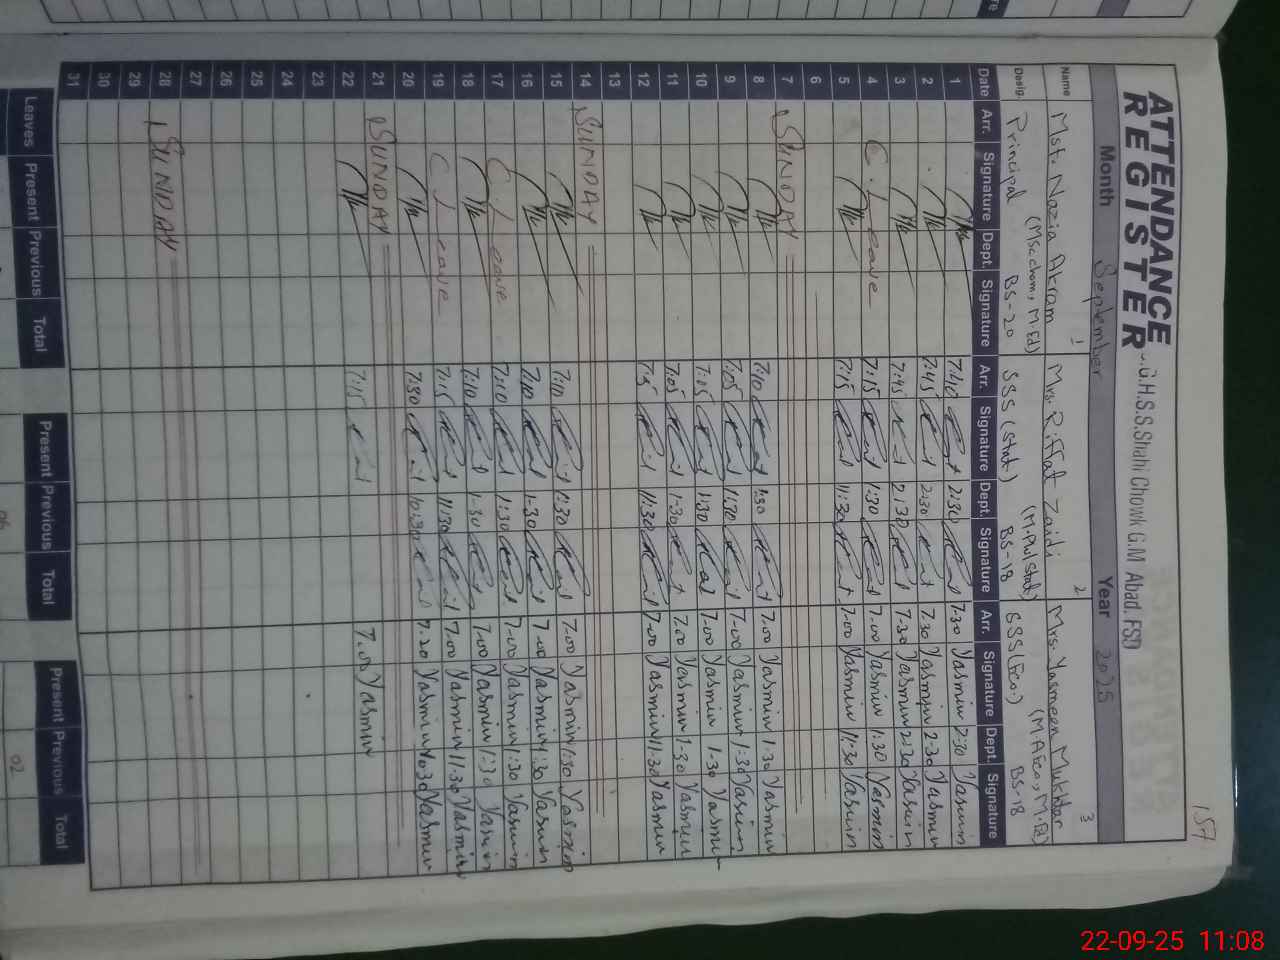 157
ATTENDANCE REGISTER
G.G.H.S.S.Shahi Chowk G.M Abad. FSD
Month September Year 2025
Name Mst. Nazia Akram 1 Mrs. Riffat Zaidi 2 Mrs. Yasmeen Mukhtar 3
Desig. Principal (Msc chem, M.Ed) BS-20 SSS (Stat) (M.Phil Stat) BS-18 SSS (Eco.) (M.A Eco, M.Ed) BS-18
Date Arr. Signature Dept. Signature Arr. Signature Dept. Signature Arr. Signature Dept. Signature
1 7:40 2:30 7.30 Yasmin 2:30 Yasmin
2 7:45 2:30 7.30 Yasmin 2.30 Yasmin
3 7:45 2:30 7.30 Yasmin 2.30 Yasmin
4 C. Leave 7:15 1:30 7.00 Yasmin 1:30 Yasmin
5 7:15 11:30 7.00 Yasmin 11:30 Yasmin
6
7 SUNDAY
8 7:10 1:30 7.00 Yasmin 1:30 Yasmin
9 7:05 1:30 7.00 Yasmin 1:30 Yasmin
10 7:05 1:30 7.00 Yasmin 1.30 Yasmin
11 7:05 1:30 7.00 Yasmin 1.30 Yasmin
12 11:30 7.00 Yasmin 11:30 Yasmin
13
14 SUNDAY
15 7:10 1:30 7.00 Yasmin 1:30 Yasmin
16 7:10 1:30 7.00 Yasmin 1:30 Yasmin
17 C. Leave 7:10 1:30 7.00 Yasmin 1:30 Yasmin
18 7:10 1:30 7.00 Yasmin 1:30 Yasmin
19 C Leave 7:15 11:30 7.00 Yasmin 11:30 Yasmin
20 7:30 10:30 7.20 Yasmin 10:30 Yasmin
21 SUNDAY
22 7:15 7.00 Yasmin
23
24
25
26
27
28 SUNDAY
29
30
31
Leaves Present Previous Total Present Previous Total Present Previous Total
02
22-09-25 11:08